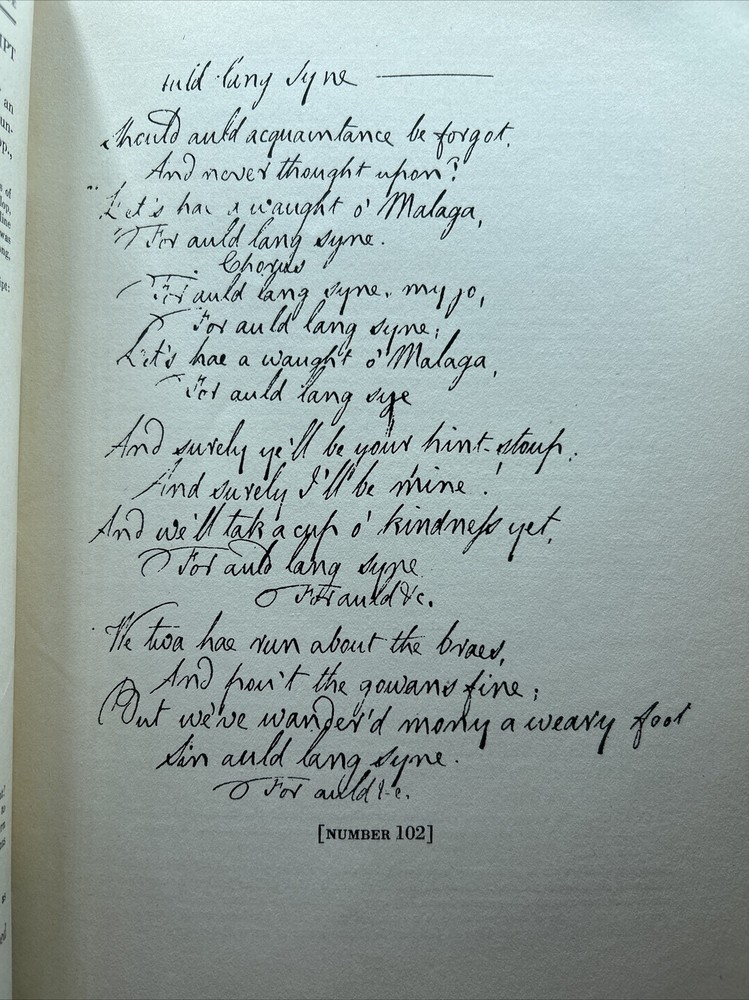 auld lang syne
Should auld acquaintance be forgot,
And never thought upon?
Let's hae a waught o' Malaga,
For auld lang syne.
Chorus
For auld lang syne, my jo,
For auld lang syne;
Let's hae a waught o' Malaga,
For auld lang sye
And surely ye'll be your hint-stoup;
And surely I'll be mine!
And we'll tak a cup o' kindneſs yet,
For auld lang syne
For auld &c.
We twa hae run about the braes,
And pow't the gowans fine;
But we've wander'd mony a weary foot
Sin auld lang syne.
For auld &c.
[NUMBER 102]
IPT
an
un-
op.,
s of